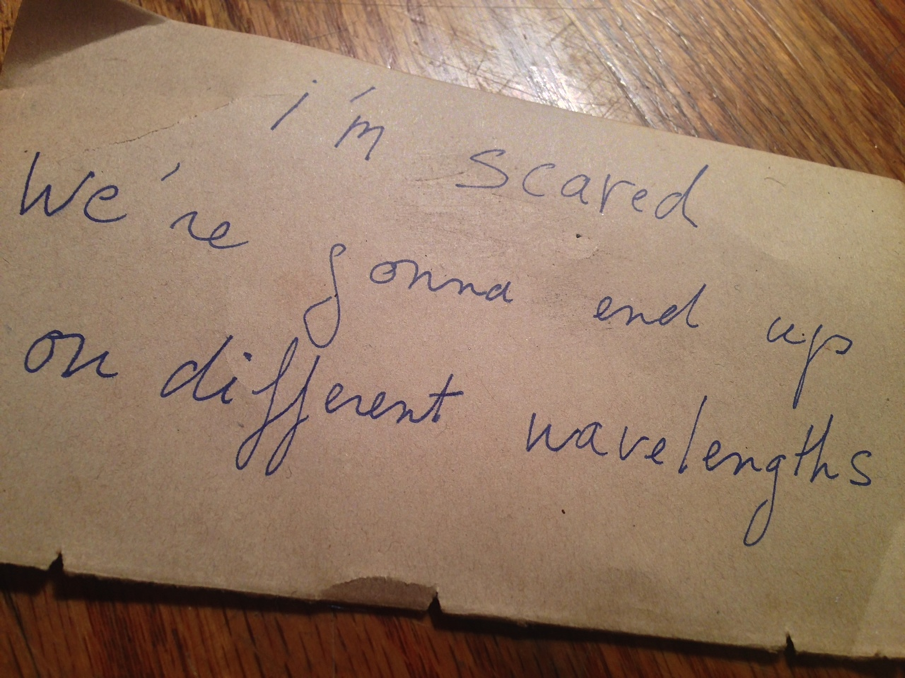 i'm scared
We're gonna end up
on different wavelengths